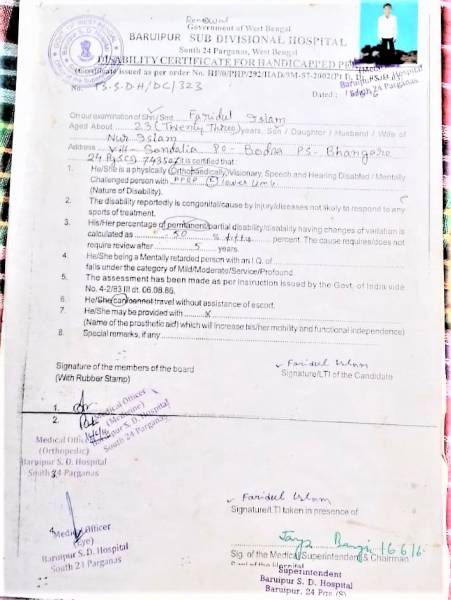 Renewal
Government of West Bengal
BARUIPUR SUB DIVISIONAL HOSPITAL
South 24 Parganas, West Bengal
DISABILITY CERTIFICATE FOR HANDICAPPED PE
(Certificate issued as per order No. HF/0/PHP/292/HAD/9M-57-2002(Pt I), D
No. B.S.D.H/DC/323
Dated :
Baruipur S. D. Hospital
South 24 Parganas
On our examination of Shri / Smt Faridul Islam
Aged About 23 (Twenty Three) years, Son / Daughter / Husband / Wife of
Nur Islam
Address Vill- Sandalia PO- Bodra PS- Bhangore
24 Pgs(S) 743502 it is certified that :
1. He/She is a physically (Orthopaedically)/Visionary, Speech and Hearing Disabled / Mentally
Challenged person with PPRP lower limb
(Nature of Disability).
2. The disability reportedly is congonital/cause by Injury/diseases not likely to respond to any
sports of treatment.
3. His/Her percentage of permanent/partial disability/disability having changes of variation is
calculated as 50 % fifty percent. The cause requires/does not
require review after 5 years.
4. He/She being a Mentally retarded person with an I.Q. of
falls under the category of Mild/Moderate/Service/Profound.
5. The assessment has been made as per instruction issued by the Govt. of India vide
No. 4-2/83 III dt. 06.08.86.
6. He/She can/cannot travel without assistance of escort.
7. He/She may be provided with x
(Name of the prosthetic aid) which will increase his/her mobility and functional independence)
8. Special remarks, if any
Signature of the members of the board
(With Rubber Stamp)
Faridul Islam
Signature/LTI of the Candidate
1.
2.
Medical Officer
(Medicine)
Baruipur S. D. Hospital
South 24 Parganas
Medical Officer
(Orthopedic)
Baruipur S. D. Hospital
South 24 Parganas
3.
Faridul Islam
Signature/LTI taken in presence of
4.
Medical Officer
(Eye)
Baruipur S. D. Hospital
South 24 Parganas
16/6/16
Sig. of the Medical Superintendent & Chairman
Superintendent
Baruipur S. D. Hospital
Baruipur, 24 Pgs (S)